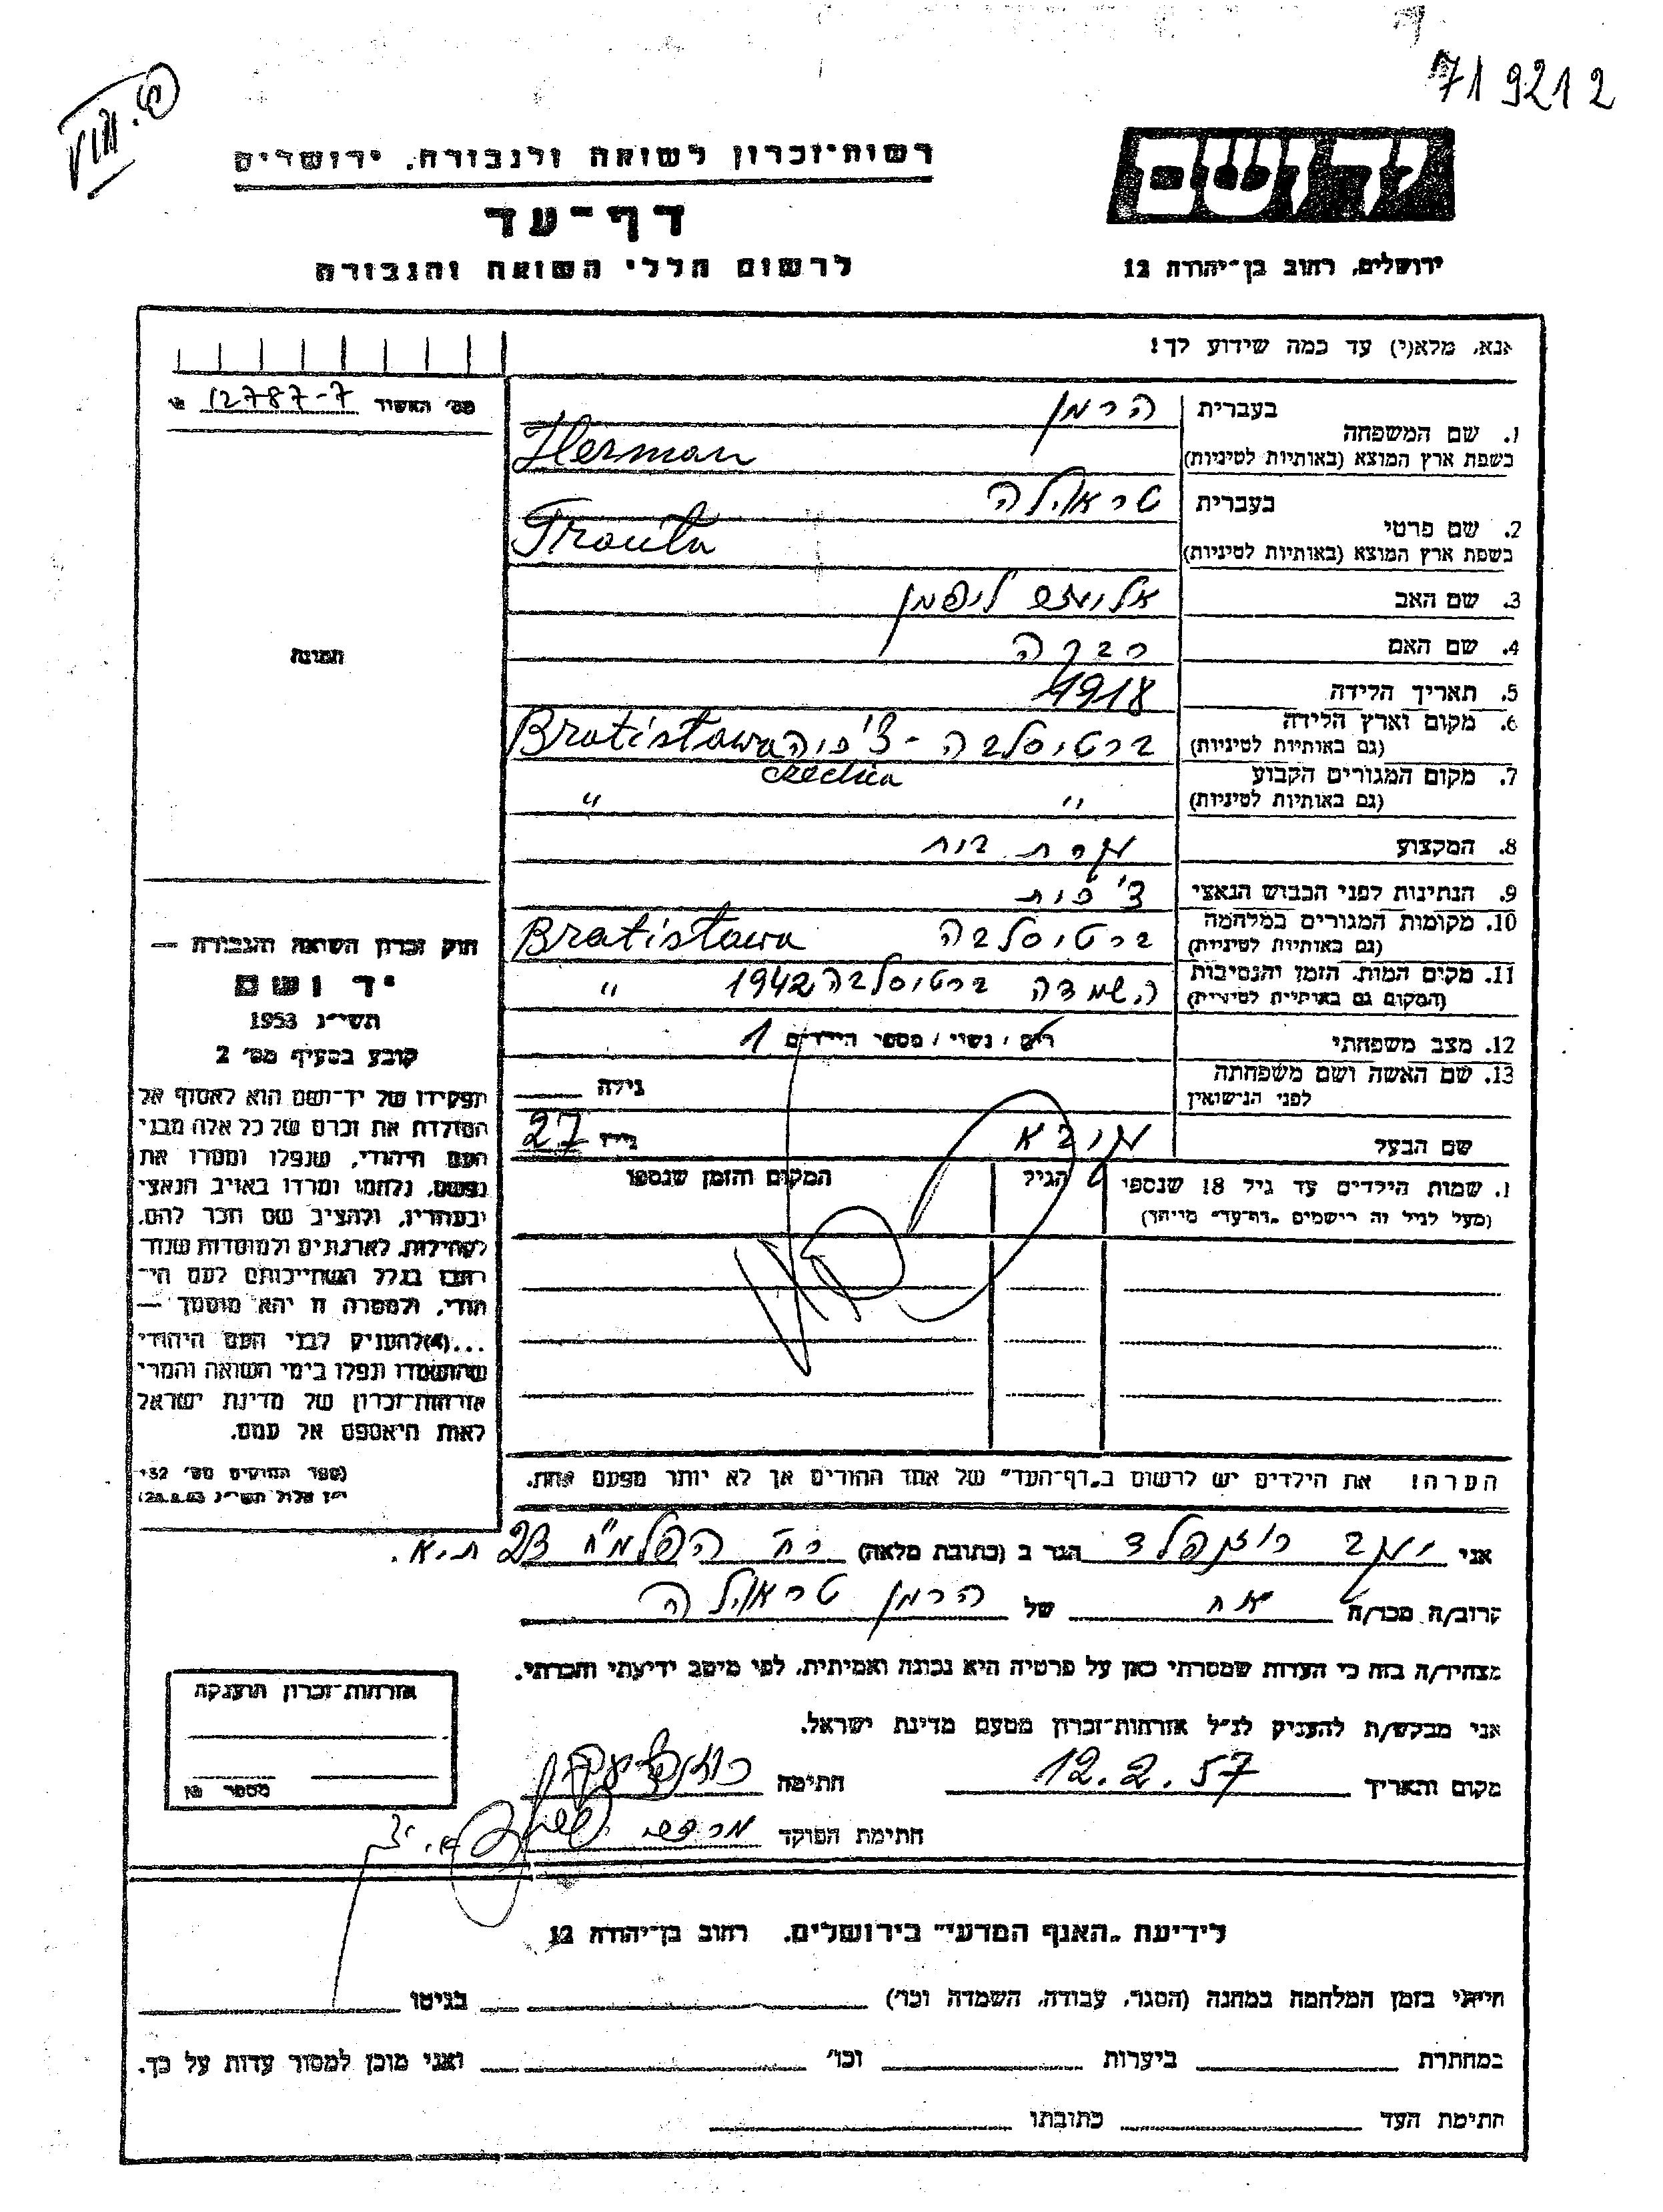 719212
יד ושם
ירושלים, רחוב בן־יהודה 12
רשות־זכרון לשואה ולגבורה, ירושלים
דף־עד
לרשום חללי השואה והגבורה
אנא, מלא(י) עד כמה שידוע לך!
מס׳ האשיד 12787-7
1. שם המשפחה בעברית הרמן
בשפת ארץ המוצא (באותיות לטיניות) Herman
2. שם פרטי בעברית
בשפת ארץ המוצא (באותיות לטיניות)
3. שם האב ליפמן
4. שם האם רבקה
5. תאריך הלידה 1918
6. מקום וארץ הלידה (גם באותיות לטיניות) ברטיסלבה - צ'כיה Bratistawa
czechia
7. מקום המגורים הקבוע (גם באותיות לטיניות) " "
8. המקצוע עקרת בית
9. הנתינות לפני הכבוש הנאצי צ'כית
10. מקומות המגורים במלחמה (גם באותיות לטיניות) ברטיסלבה Bratistawa
11. מקום המות, הזמן והנסיבות (המקום גם באותיות לטיניות) השמדה ברטיסלבה 1942 "
12. מצב משפחתי רוק / נשוי / מספר הילדים 1
13. שם האשה ושם משפחתה לפני הנישואין גילה
שם הבעל גילו 27
1. שמות הילדים עד גיל 18 שנספו הגיל המקום והזמן שנספו
(מעל לגיל זה רישמים „דף־עד" מייחד)
הערה! את הילדים יש לרשום ב„דף־העד" של אחד ההורים אך לא יותר מפעם אחת.
תמונה
חוק זכרון השואה והגבורה —
יד ושם
תשי״ג 1953
קובע בסעיף מס׳ 2
תפקידו של יד־ושם הוא לאסוף אל
המולדת את זכרם של כל אלה מבני
העם היהודי, שנפלו ומסרו את
נפשם, נלחמו ומרדו באויב הנאצי
ובעוזריו, ולהציב שם וזכר להם,
לקהילות, לארגונים ולמוסדות שנח־
רבו בגלל השתייכותם לעם הי־
הודי, ולמטרה זו יהא מוסמך —
...(4) להעניק לבני העם היהודי
שהושמדו ונפלו בימי השואה והמרי
אזרחות־זכרון של מדינת ישראל
לאות היאספם אל עמם.
(ספר החוקים מס׳ 132
י״ז אלול תשי״ג 28.8.53)
אני יעקב רוזנפלד הגר ב (כתובת מלאה) רח הפלמ״ח 23 ת.א.
קרוב/ה מכר/ה אח של הרמן
מצהיר/ה בזה כי העדות שמסרתי כאן על פרטיה היא נכונה ואמיתית, לפי מיטב ידיעתי והכרתי.
אני מבקש/ת להעניק לנ״ל אזרחות־זכרון מטעם מדינת ישראל.
מקום ותאריך 12.2.57 חתימה
חתימת הפוקד
אזרחות־זכרון הוענקה
מספר
לידיעת „האגף המדעי" בירושלים, רחוב בן־יהודה 12
הייתי בזמן המלחמה במחנה (הסגר, עבודה, השמדה וכו׳) בגיטו
במחתרת ביערות וכו׳ ואני מוכן למסור עדות על כך.
חתימת העד כתובתו